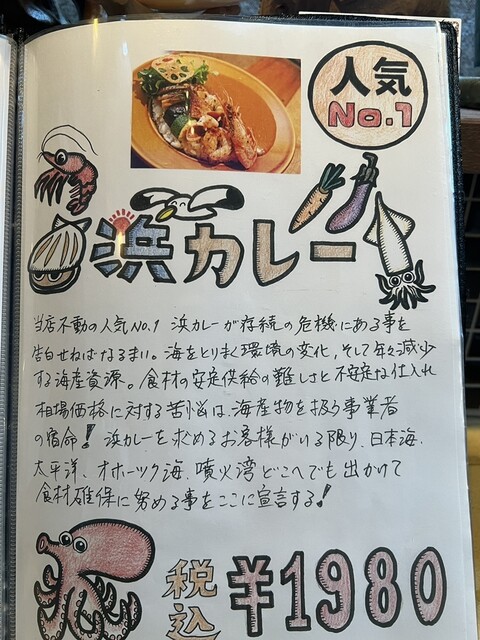 人気
No.1
浜カレー
当店不動の人気No.1 浜カレーが存続の危機にある事を
告白せねばなるまい。海をとりまく環境の変化、そして年々減少
する海産資源。食材の安定供給の難しさと不安定な仕入れ
相場価格に対する苦悩は、海産物を扱う事業者
の宿命！浜カレーを求めるお客様がいる限り、日本海、
太平洋、オホーツク海、噴火湾どこへでも出かけて
食材確保に努める事をここに宣言する！
税込 ¥1980